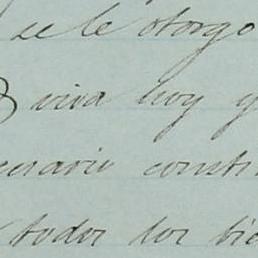 se le otorgo
viva hoy y
cesario consti
todos los bie